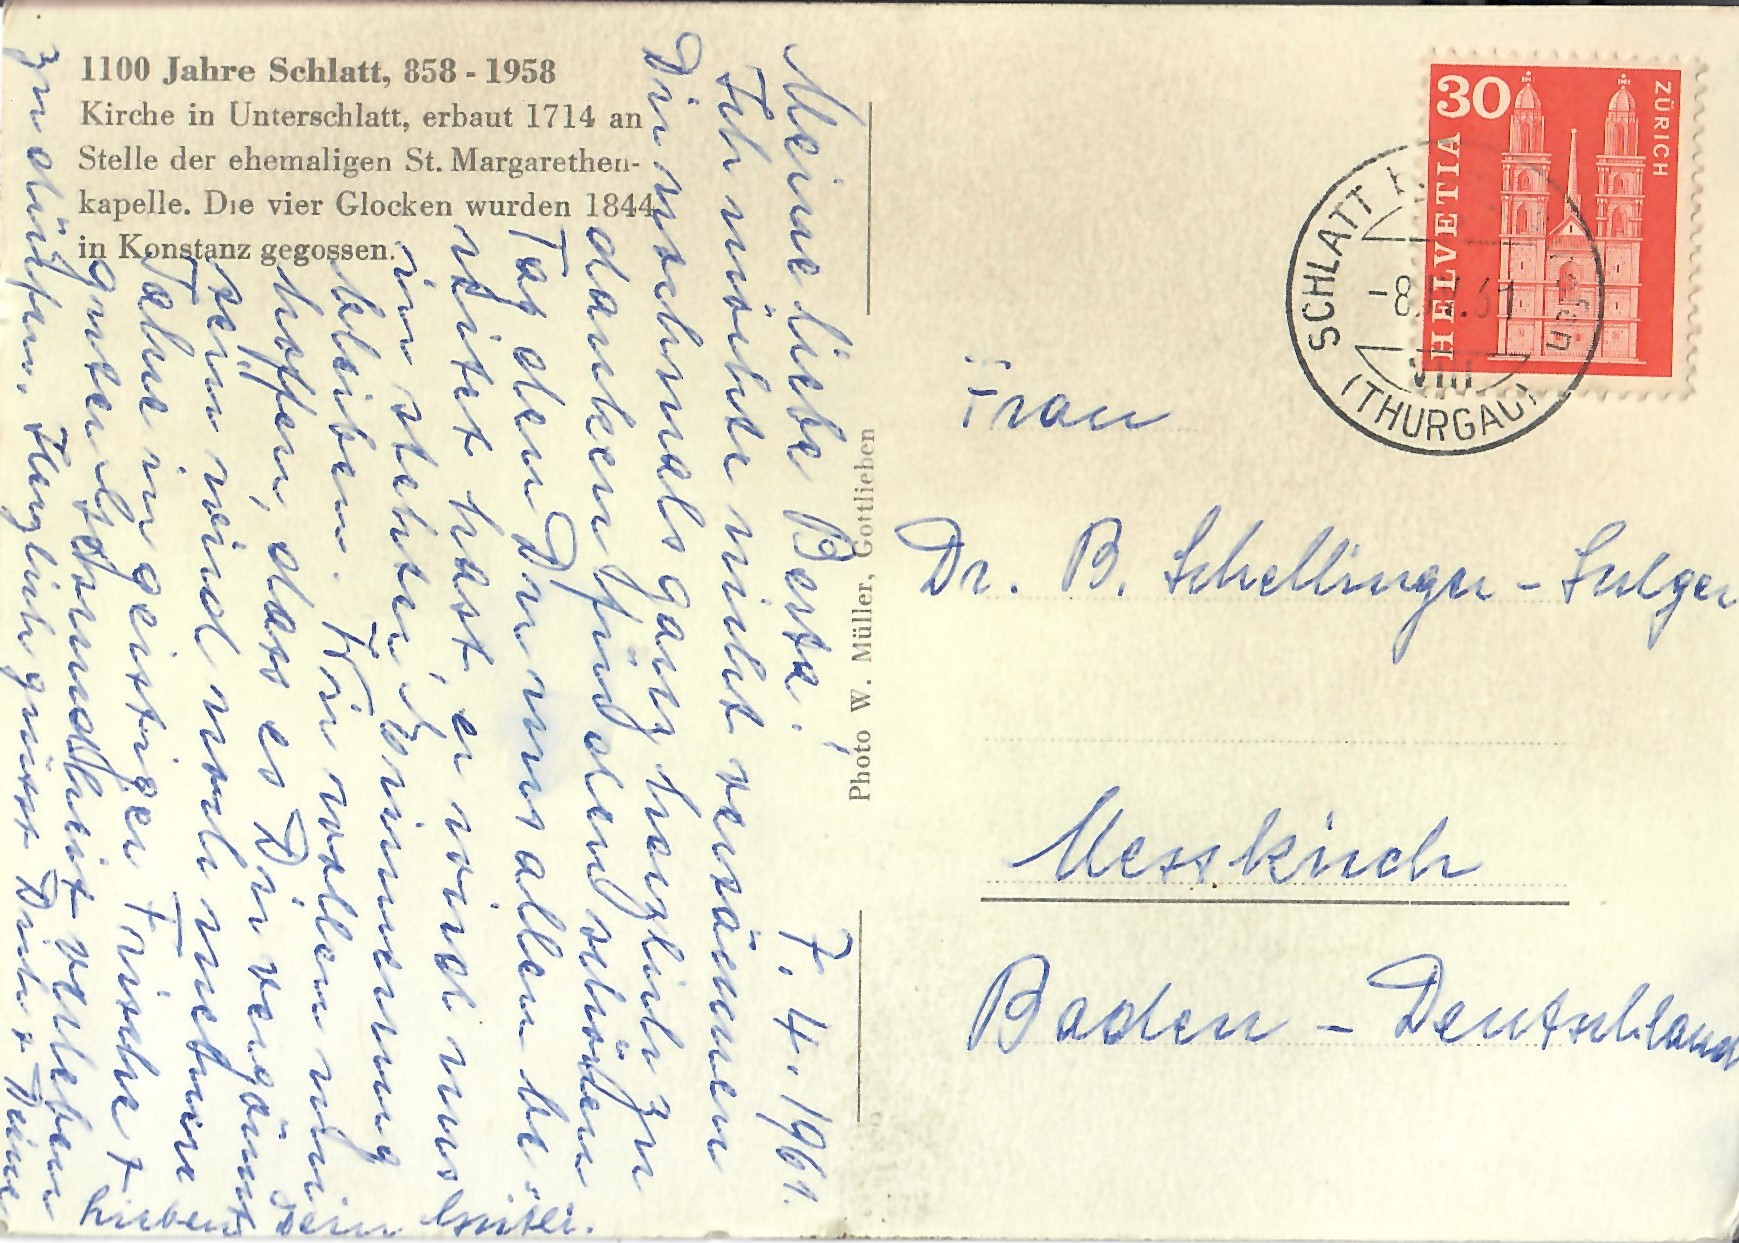 1100 Jahre Schlatt, 858 - 1958
Kirche in Unterschlatt, erbaut 1714 an
Stelle der ehemaligen St. Margarethen-
kapelle. Die vier Glocken wurden 1844
in Konstanz gegossen.
Meine liebe Berta! 7. 4. 1961.
Ich möchte nicht versäumen
Dir nochmals ganz herzlich zu
danken für den schönen
Tag den Du uns allen be
reitet hast, er wird uns
in steter Erinnerung
bleiben. Wir wollen nun
hoffen, dass es Dir vergönnt
sein wird noch mehrere
Jahre in geistiger Frische +
guter Gesundheit verleben
zu dürfen. Herzlich grüsst Dich + Deine
Lieben Dein
Photo W. Müller, Gottlieben
HELVETIA
30
ZÜRICH
SCHLATT
(THURGAU)
Frau
Dr. B. Schellinger - Sulger
Messkirch
Baden - Deutschland